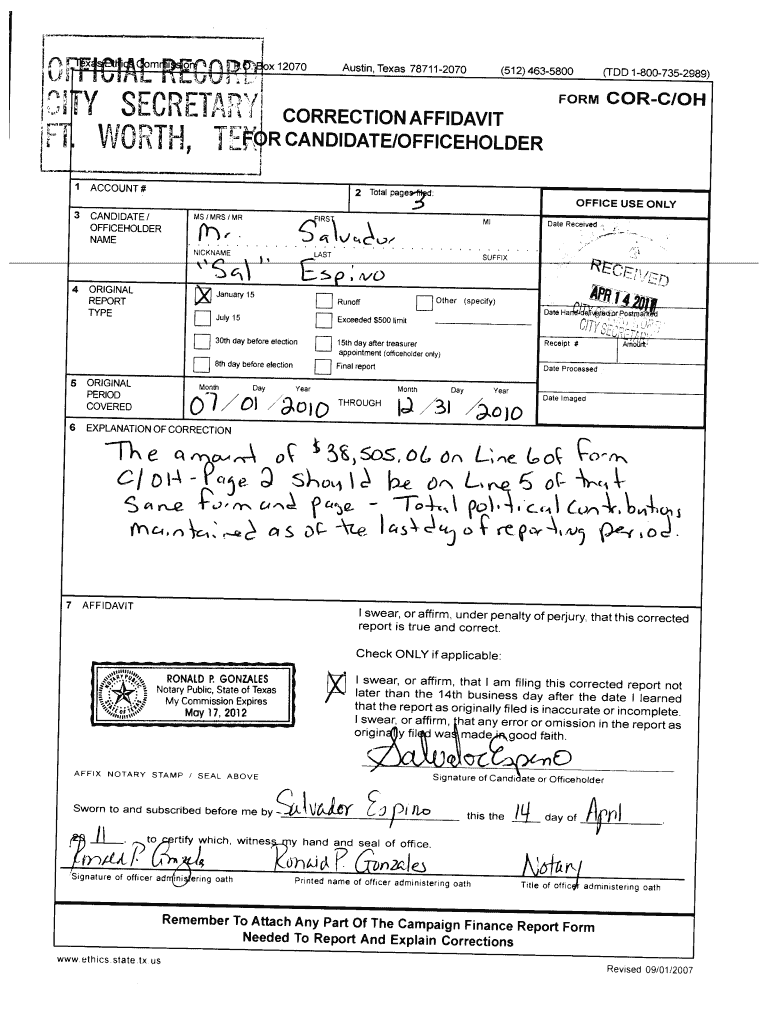 Texas Ethics Commission P.O. Box 12070 Austin, Texas 78711-2070 (512) 463-5800 (TDD 1-800-735-2989)
OFFICIAL RECORD
CITY SECRETARY
FT. WORTH, TEX
FORM COR-C/OH
CORRECTION AFFIDAVIT
FOR CANDIDATE/OFFICEHOLDER
1 ACCOUNT #
2 Total pages filed:
3
OFFICE USE ONLY
3 CANDIDATE / OFFICEHOLDER NAME
MS / MRS / MR FIRST MI
Mr. Salvador
NICKNAME LAST SUFFIX
"Sal" Espino
Date Received
RECEIVED
APR 14 2011
CITY SECRETARY
Date Hand-delivered or Postmarked
Receipt # Amount
Date Processed
Date Imaged
4 ORIGINAL REPORT TYPE
X January 15 Runoff Other (specify)
July 15 Exceeded $500 limit
30th day before election 15th day after treasurer appointment (officeholder only)
8th day before election Final report
5 ORIGINAL PERIOD COVERED
Month Day Year Month Day Year
07/01/2010 THROUGH 12/31/2010
6 EXPLANATION OF CORRECTION
The amount of $38,505.06 on Line 6 of Form
C/OH - Page 2 should be on Line 5 of that
same form and page - Total political contributions
maintained as of the last day of reporting period.
7 AFFIDAVIT
I swear, or affirm, under penalty of perjury, that this corrected
report is true and correct.
Check ONLY if applicable:
X I swear, or affirm, that I am filing this corrected report not
later than the 14th business day after the date I learned
that the report as originally filed is inaccurate or incomplete.
I swear, or affirm, that any error or omission in the report as
originally filed was made in good faith.
RONALD P. GONZALES
Notary Public, State of Texas
My Commission Expires
May 17, 2012
NOTARY PUBLIC
STATE OF TEXAS
Salvador Espino
AFFIX NOTARY STAMP / SEAL ABOVE
Signature of Candidate or Officeholder
Sworn to and subscribed before me by Salvador Espino this the 14 day of April
20 11, to certify which, witness my hand and seal of office.
Ronald P. Gonzales Ronald P. Gonzales Notary
Signature of officer administering oath Printed name of officer administering oath Title of officer administering oath
Remember To Attach Any Part Of The Campaign Finance Report Form
Needed To Report And Explain Corrections
www.ethics.state.tx.us
Revised 09/01/2007